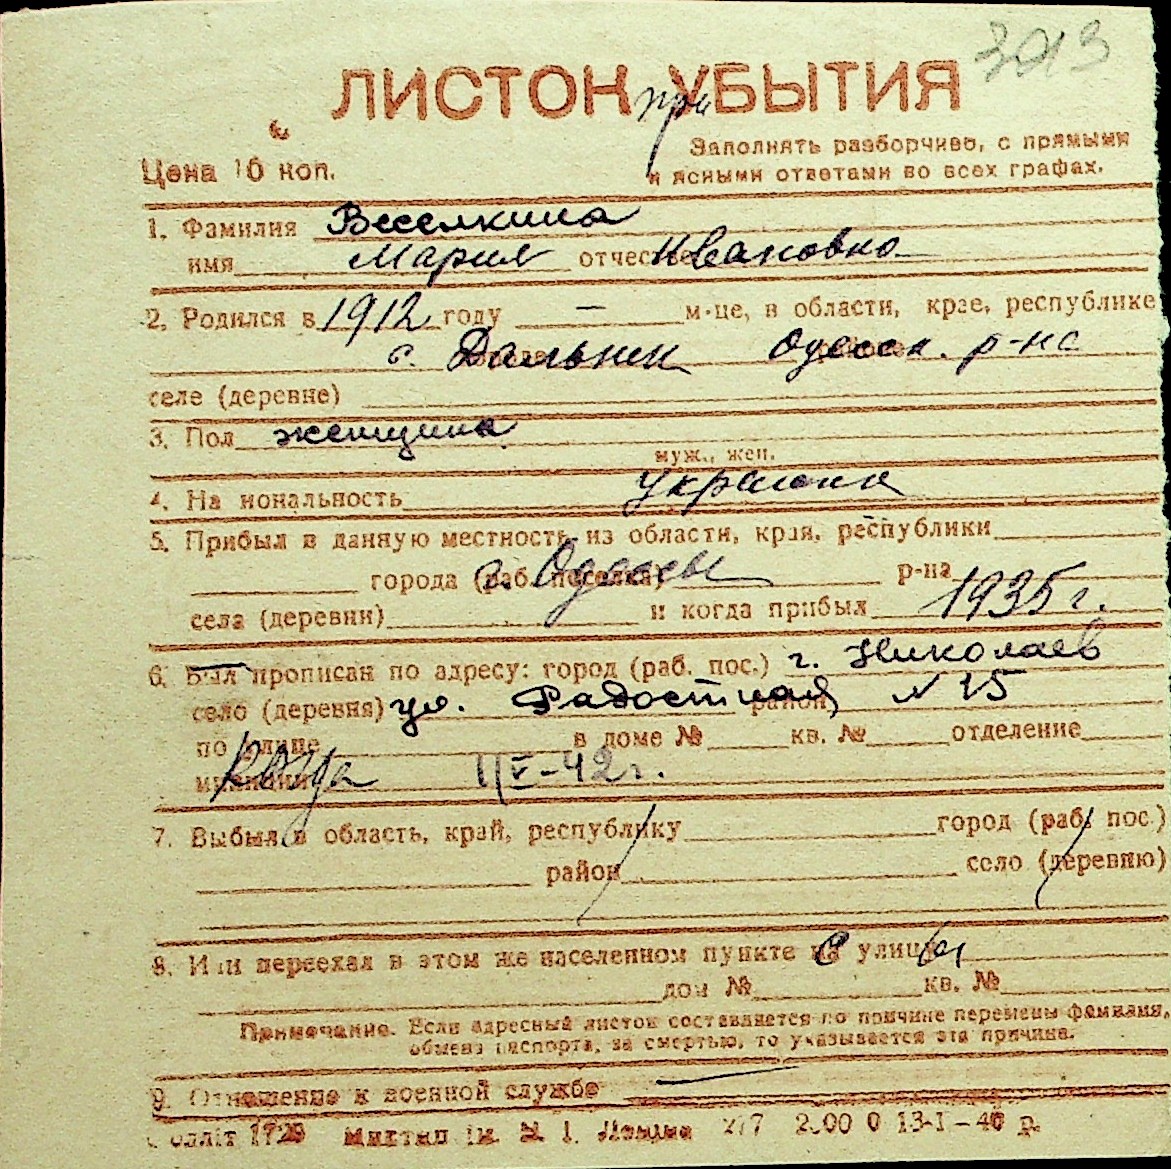 3013
ЛИСТОК при УБЫТИЯ
Заполнять разборчиво, с прямыми
и ясными ответами во всех графах.
Цена 16 коп.
1. Фамилия Веселкина
имя Мария отчество Ивановна
2. Родился в 1912 году — м-це, в области, крае, республике
с. Дальник Одесск. р-на
селе (деревне)
3. Пол женщина
муж., жен.
4. Национальность украинка
5. Прибыл в данную местность из области, края, республики
города (раб. поселка) г. Одессы р-на
села (деревни) и когда прибыл 1935 г.
6. Был прописан по адресу: город (раб. пос.) г. Николаев
село (деревня) ул. Радостная район N 15
по улице в доме № кв. № отделение
милиции Когда V-42 г.
7. Выбыл в область, край, республику город (раб. пос.)
район село (деревню)
8. Или переехал в этом же населенном пункте с улицы
дом № кв. №
Примечание. Если адресный листок составляется по причине перемены фамилии,
обмена паспорта, за смертью, то указывается эта причина.
9. Отношение к военной службе —
1729 им. 13-I-40 р.